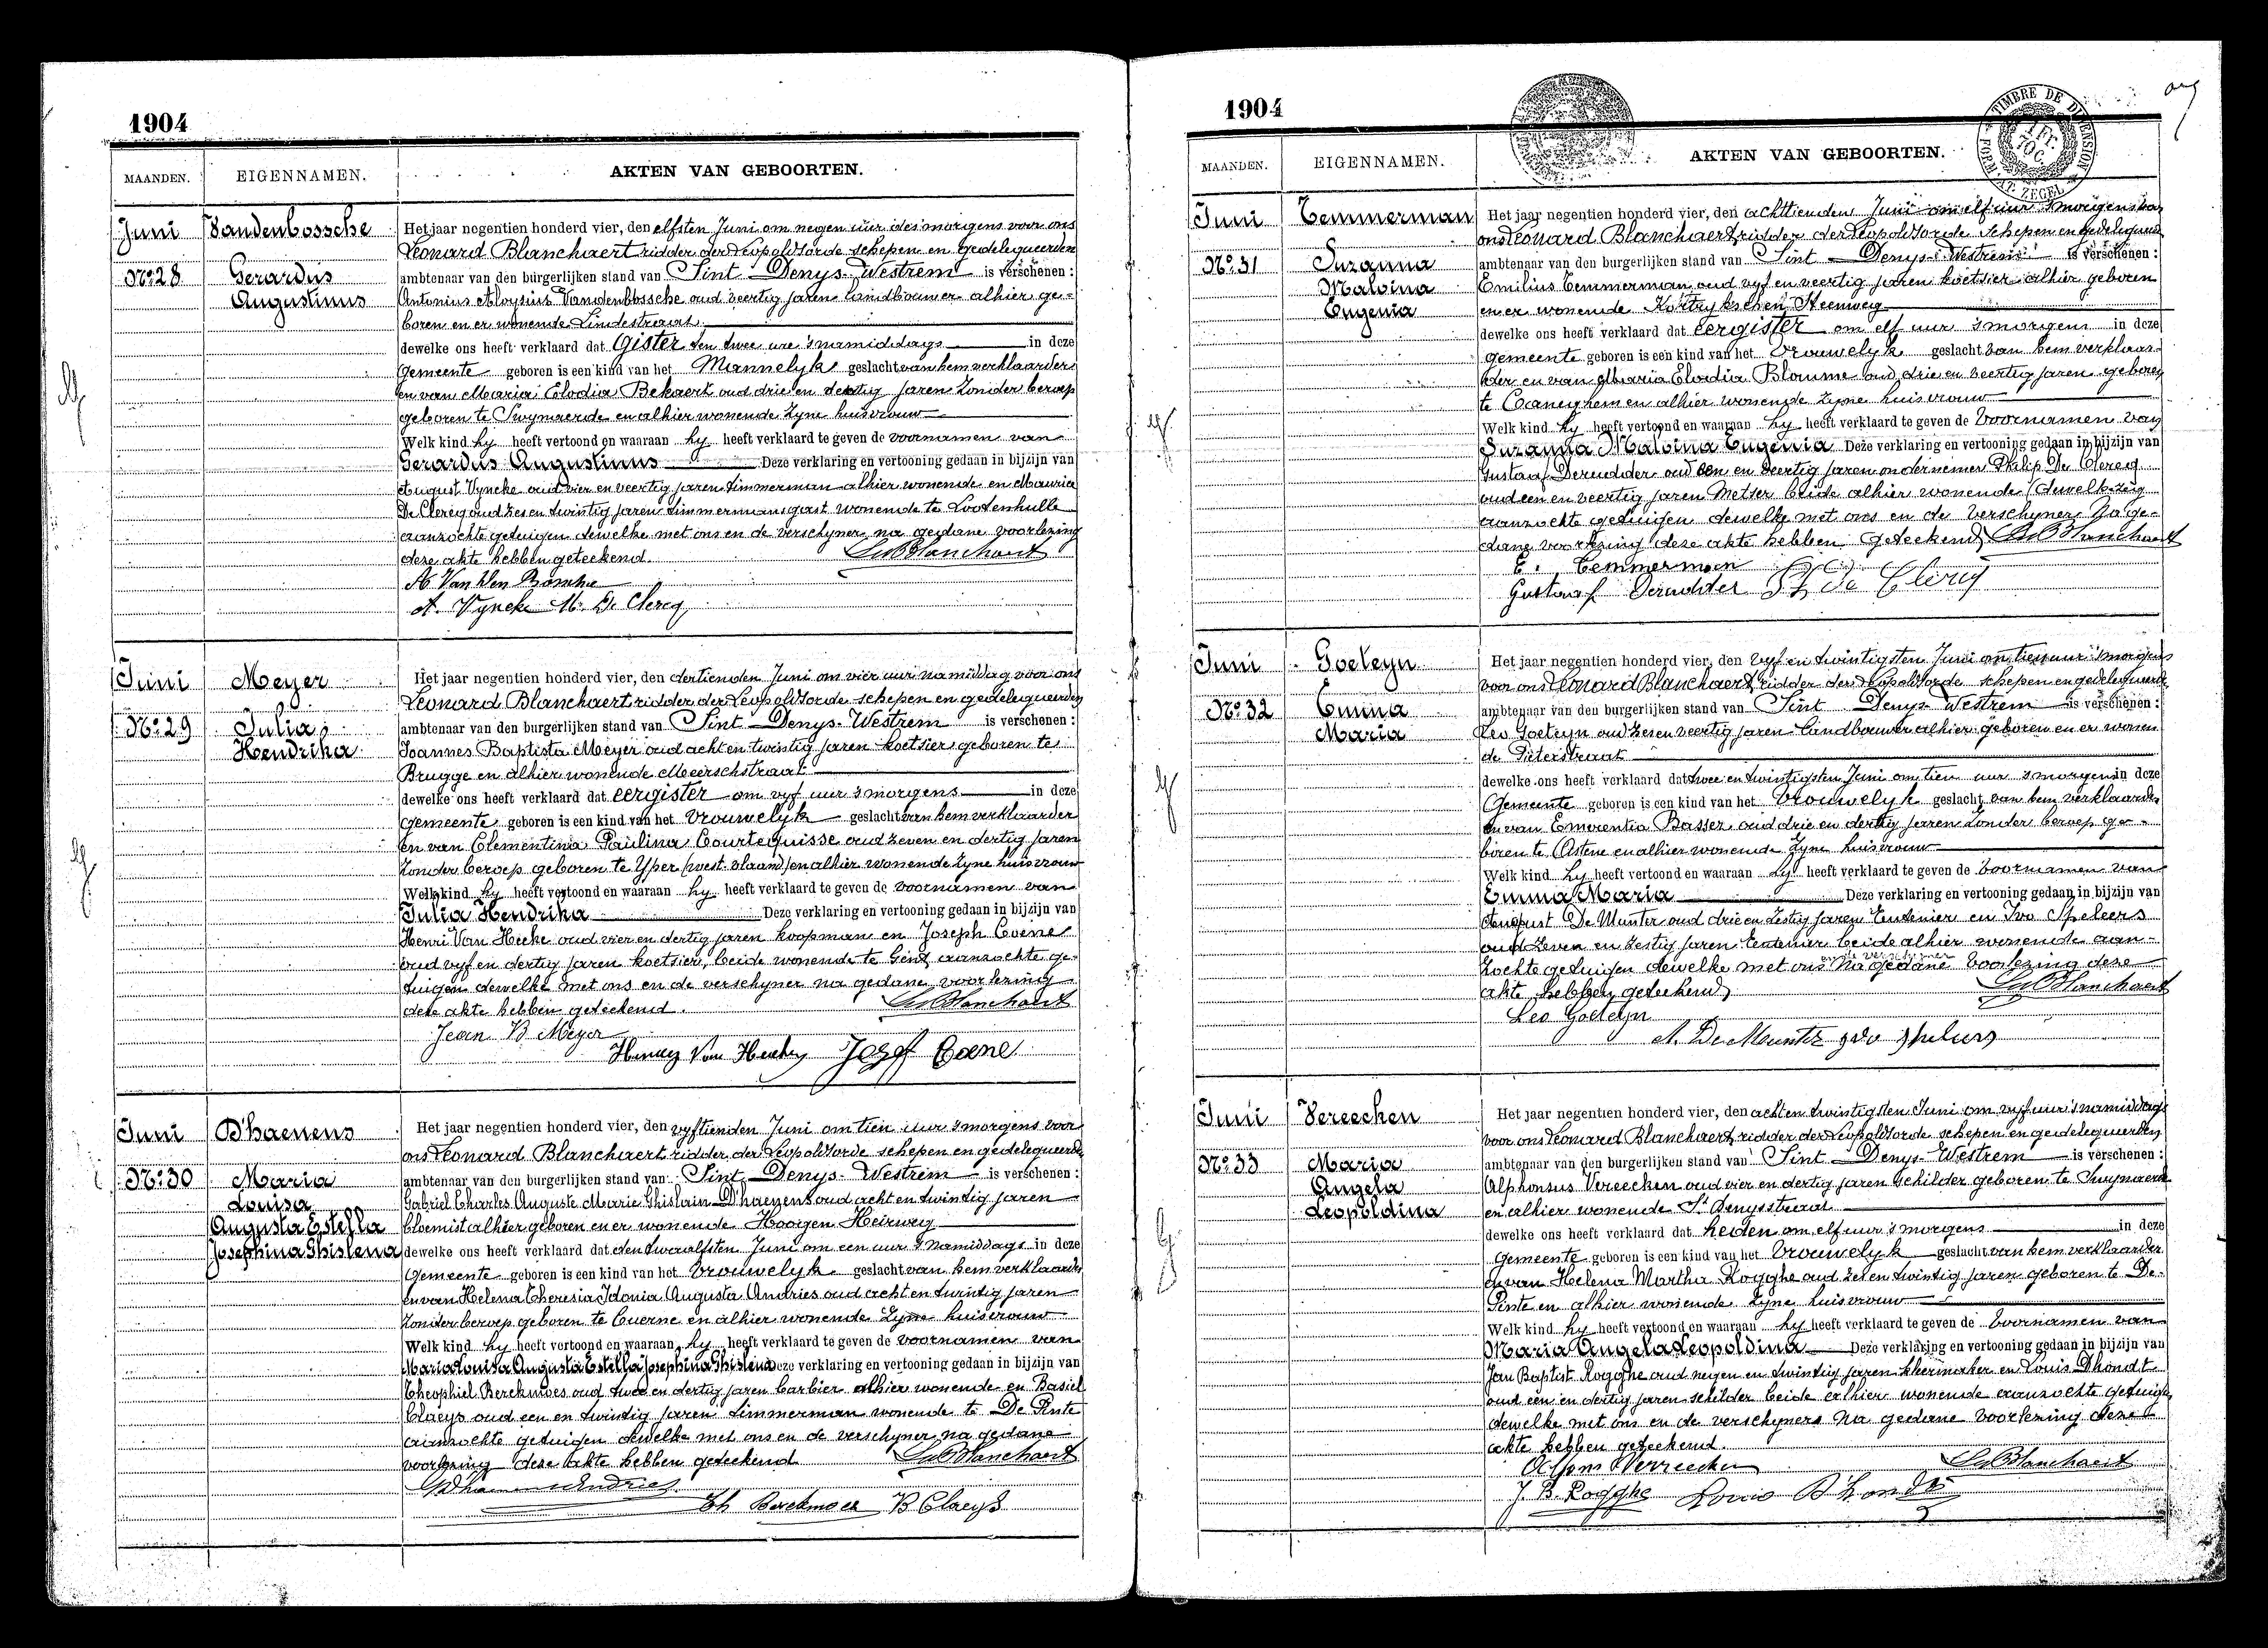 1904
MAANDEN. EIGENNAMEN. AKTEN VAN GEBOORTEN.
Juni
Vandenbossche
No. 28
Gerardus
Augustinus
Het jaar negentien honderd vier, den elfsten Juni om negen uur des morgens voor ons
Leonard Blanchaert ridder der Leopoldsorde schepen en gedelegueerden
ambtenaar van den burgerlijken stand van Sint Denys-Westrem is verschenen :
Antonius Aloysius Vandenbossche oud veertig jaren landbouwer alhier ge-
boren en er wonende Lindestraat
dewelke ons heeft verklaard dat Gister ten twee ure s'namiddags in deze
Gemeente geboren is een kind van het Mannelyk geslacht van hem verklaarder
en van Maria Elodia Bekaert oud drie en dertig jaren zonder beroep
geboren te Swynaerde en alhier wonende zyne huisvrouw
Welk kind hy heeft vertoond en waaraan hy heeft verklaard te geven de voornamen van
Gerardus Augustinus Deze verklaring en vertooning gedaan in bijzijn van
August Vyncke oud vier en veertig jaren timmerman alhier wonende en Maurice
De Clercq oud zes en twintig jaren timmermansgast wonende te Lootenhulle
aanzochte getuigen dewelke met ons en de verschyner na gedane voorlezing
deze akte hebben geteekend. Ls Blanchaert
A Van den Bossche
A. Vyncke M. De Clercq
Juni
Meyer
No. 29
Julia
Hendrika
Het jaar negentien honderd vier, den dertienden Juni om vier uur namiddag voor ons
Leonard Blanchaert ridder der Leopoldsorde schepen en gedelegueerden
ambtenaar van den burgerlijken stand van Sint Denys-Westrem is verschenen :
Joannes Baptista Meyer oud acht en twintig jaren koetsier geboren te
Brugge en alhier wonende Meerschstraat
dewelke ons heeft verklaard dat eergister om vyf uur s'morgens in deze
Gemeente geboren is een kind van het Vrouwelyk geslacht van hem verklaarder
en van Clementina Paulina Courtequisse oud zeven en dertig jaren
zonder beroep geboren te Yper (west-vlaand) en alhier wonende zyne huisvrouw
Welk kind hy heeft vertoond en waaraan hy heeft verklaard te geven de voornamen van
Julia Hendrika Deze verklaring en vertooning gedaan in bijzijn van
Henri Van Hecke oud vier en dertig jaren koopman en Joseph Coene
oud vyf en dertig jaren koetsier, beide wonende te Gent aanzochte ge-
tuigen dewelke met ons en de verschyner na gedane voorlezing
deze akte hebben geteekend. Ls Blanchaert
Jean B Meyer
Henry Van Hecke Jozef Coene
Juni
D'haenens
No. 30
Maria
Louisa
Augusta Estella
Josephina Ghislena
Het jaar negentien honderd vier, den vyftienden Juni om tien uur s'morgens voor
ons Leonard Blanchaert ridder der Leopoldsorde schepen en gedelegueerden
ambtenaar van den burgerlijken stand van Sint Denys-Westrem is verschenen :
Gabriel Charles Auguste Marie Ghislain D'haenens oud acht en twintig jaren
bloemist alhier geboren en er wonende Hoogen Heirweg
dewelke ons heeft verklaard dat den twaalfsten Juni om een uur s'namiddags in deze
Gemeente geboren is een kind van het Vrouwelyk geslacht van hem verklaarder
en van Helena Theresia Idonia Augusta Andries oud acht en twintig jaren
zonder beroep geboren te Cuerne en alhier wonende zyne huisvrouw
Welk kind hy heeft vertoond en waaraan hy heeft verklaard te geven de voornamen van
Maria Louisa Augusta Estella Josephina Ghislena Deze verklaring en vertooning gedaan in bijzijn van
Theophiel Berckmoes oud twee en dertig jaren barbier alhier wonende en Basiel
Claeys oud een en twintig jaren timmerman wonende te De Pinte
aanzochte getuigen dewelke met ons en de verschyner na gedane
voorlezing deze akte hebben geteekend Ls Blanchaert
Th Berckmoes B Claeys
1904
TIMBRE DE DIMENSION
MAANDEN. EIGENNAMEN. AKTEN VAN GEBOORTEN.
Juni
Temmerman
No. 31
Suzanna
Malvina
Eugenia
Het jaar negentien honderd vier, den achttienden Juni om elf uur s'morgens voor
ons Leonard Blanchaert ridder der Leopoldsorde schepen en gedelegueerden
ambtenaar van den burgerlijken stand van Sint Denys-Westrem is verschenen :
Emilius Temmerman oud vyf en veertig jaren koetsier alhier geboren
en er wonende Kortrykschen Steenweg
dewelke ons heeft verklaard dat Eergister om elf uur s'morgens in deze
Gemeente geboren is een kind van het Vrouwelyk geslacht van hem verklaar-
der en van Maria Elodia Blomme oud drie en veertig jaren geboren
te Caneghem en alhier wonende zyne huisvrouw
Welk kind hy heeft vertoond en waaraan hy heeft verklaard te geven de voornamen van
Suzanna Malvina Eugenia Deze verklaring en vertooning gedaan in bijzijn van
Gustaaf Derudder oud een en veertig jaren ondernemer Philip De Clercq
oud een en veertig jaren Metser beide alhier wonende
aanzochte getuigen dewelke met ons en de verschyner Na ge-
dane voorlezing deze akte hebben geteekend Ls Blanchaert
E. Temmerman
Gustaaf Derudder Ph De Clercq
Juni
Goeteyn
No. 32
Emma
Maria
Het jaar negentien honderd vier, den vyf en twintigsten Juni om tien uur s'morgens
voor ons Leonard Blanchaert ridder der Leopoldsorde schepen en gedelegueerde
ambtenaar van den burgerlijken stand van Sint Denys-Westrem is verschenen :
Leo Goeteyn oud zes en veertig jaren landbouwer alhier geboren en er wonen-
de Pieterstraat
dewelke ons heeft verklaard dat twee en twintigsten Juni om tien uur s'morgens in deze
Gemeente geboren is een kind van het Vrouwelyk geslacht van hem verklaarder
en van Emerentia Basser oud drie en dertig jaren zonder beroep ge-
boren te Astene en alhier wonende zyne huisvrouw
Welk kind hy heeft vertoond en waaraan hy heeft verklaard te geven de voornamen van
Emma Maria Deze verklaring en vertooning gedaan in bijzijn van
August De Munter oud drie en zestig jaren rentenier en Ivo Speleers
oud zeven en zestig jaren rentenier beide alhier wonende aan-
zochte getuigen dewelke met ons en de verschyner Na gedane voorlezing deze
akte hebben geteekend Ls Blanchaert
Leo Goeteyn
A. De Munter Ivo Speleers
Juni
Vereecken
No. 33
Maria
Angela
Leopoldina
Het jaar negentien honderd vier, den acht en twintigsten Juni om vyf uur s'namiddags
voor ons Leonard Blanchaert ridder der Leopoldsorde schepen en gedelegueerden
ambtenaar van den burgerlijken stand van Sint Denys-Westrem is verschenen :
Alphonsus Vereecken oud vier en dertig jaren schilder geboren te Swynaerde
en alhier wonende St Denysstraat
dewelke ons heeft verklaard dat heden om elf uur s'morgens in deze
Gemeente geboren is een kind van het Vrouwelyk geslacht van hem verklaarder
en van Helena Martha Rogghe oud zes en twintig jaren geboren te De-
Pinte en alhier wonende zyne huisvrouw
Welk kind hy heeft vertoond en waaraan hy heeft verklaard te geven de voornamen van
Maria Angela Leopoldina Deze verklaring en vertooning gedaan in bijzijn van
Jan Baptist Rogghe oud negen en twintig jaren kleermaker en Louis Dhondt
oud een en dertig jaren schilder beide alhier wonende aanzochte getuigen
dewelke met ons en de verschyners Na gedane voorlezing deze
akte hebben geteekend.
Alfons Verreecken Ls Blanchaert
J. B. Rogghe Louis D'hondt